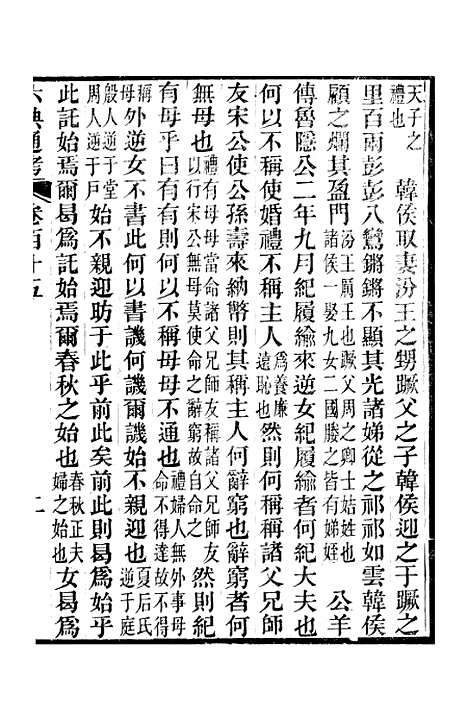 天子之禮也　韓侯取妻汾王之甥蹶父之子韓侯迎之于蹶之
里百兩彭彭八鸞鏘鏘不顯其光諸娣從之祁祁如雲韓侯
顧之爛其盈門汾王厲王也蹶父周之卿士姞姓也諸侯一娶九女二國媵之皆有娣姪　公羊
傳魯隱公二年九月紀履緰來逆女紀履緰者何紀大夫也
何以不稱使婚禮不稱主人為養廉遠恥也然則何稱稱諸父兄師
友宋公使公孫壽來納幣則其稱主人何辭窮也辭窮者何
無母也禮有母母當命諸父兄師友稱諸父兄師友以行宋公無母莫使命之辭窮故自命之然則紀
有母乎曰有有則何以不稱母母不通也禮婦人無外事母命不得達故不得
稱母外逆女不書此何以書譏何譏爾譏始不親迎也夏后氏逆于庭
殷人逆于堂周人逆于戶始不親迎昉于此乎前此矣前此則曷為始乎
此託始焉爾曷為託始焉爾春秋之始也春秋正夫婦之始也女曷為
六典通考　卷百十五　二